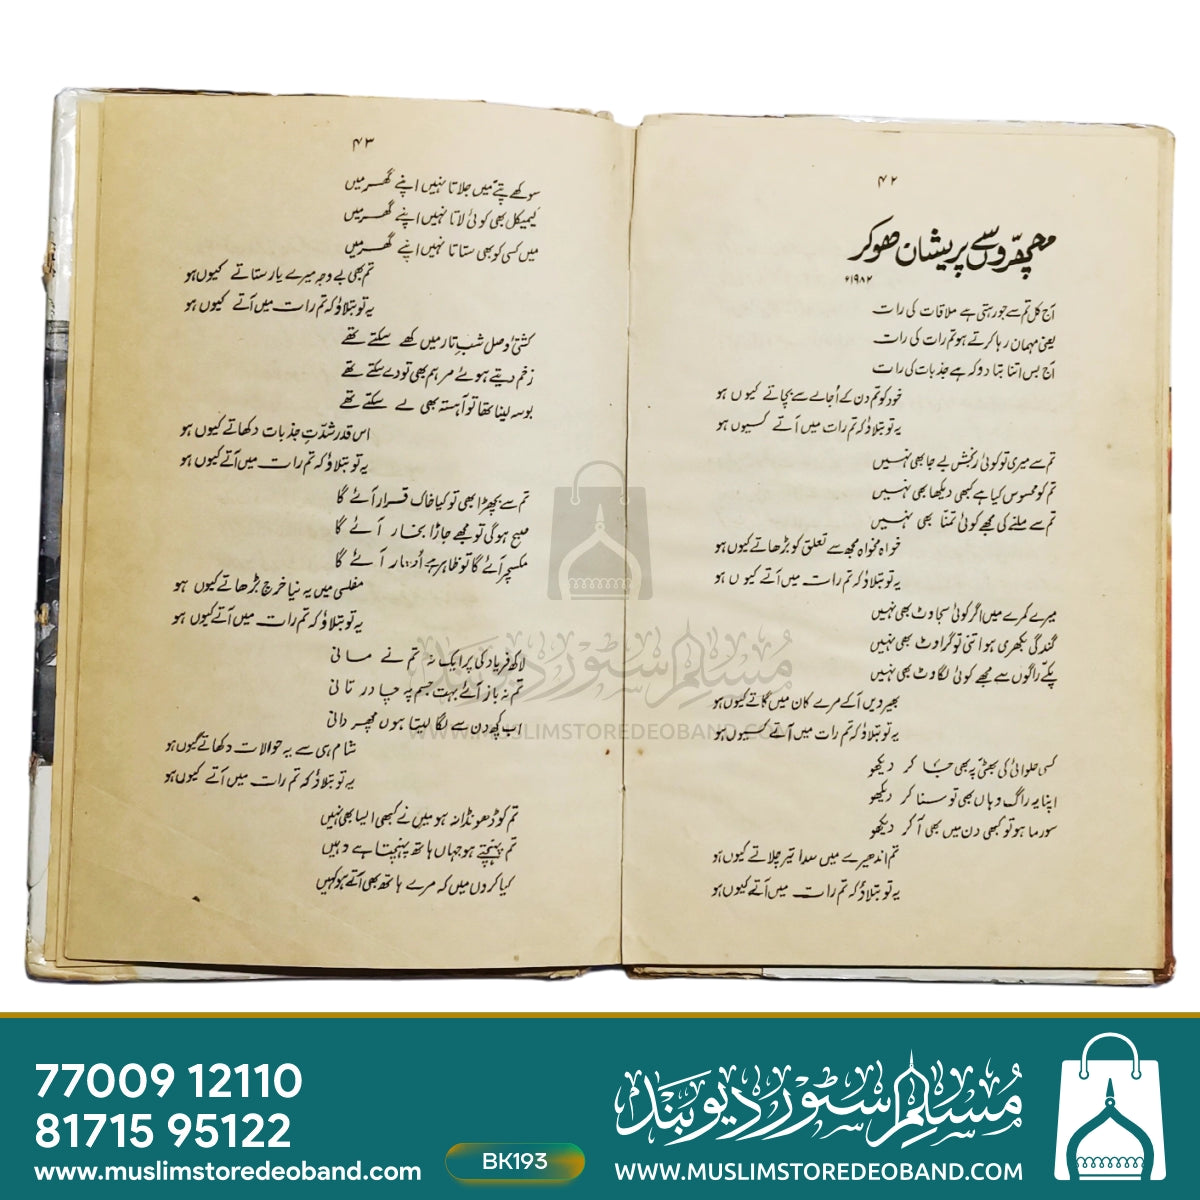 ۴۲
مچھروں سے پریشان ھوکر
۱۹۸۲ء
آج کل تم سے جو رہتی ہے ملاقات کی رات
یعنی مہمان رہا کرتے ہو تم رات کی رات
آج بس اتنا بتا دو کہ ہے جذبات کی رات
خود کو تم دن کے اُجالے سے بچاتے کیوں ہو
یہ تو بتلاؤ کہ تم رات میں آتے کیوں ہو
تم سے میری تو کوئی رنجش بے جا بھی نہیں
تم کو محسوس کیا ہے کبھی دیکھا بھی نہیں
تم سے ملنے کی مجھے کوئی تمنّا بھی نہیں
خواہ مخواہ مجھ سے تعلق کو بڑھاتے کیوں ہو
یہ تو بتلاؤ کہ تم رات میں آتے کیوں ہو
میرے کمرے میں اگر کوئی سجاوٹ بھی نہیں
گندگی بکھری ہو اتنی تو گراوٹ بھی نہیں
پکّے راگوں سے مجھے کوئی لگاوٹ بھی نہیں
بھیرویں آکے مرے کان میں گاتے کیوں ہو
یہ تو بتلاؤ کہ تم رات میں آتے کیوں ہو
کسی حلوائی کی بھٹّی پہ بھی جا کر دیکھو
اپنا یہ راگ وہاں بھی تو سنا کر دیکھو
سورما ہو تو کبھی دن میں بھی آ کر دیکھو
تم اندھیرے میں سدا تیر چلاتے کیوں ہو
یہ تو بتلاؤ کہ تم رات میں آتے کیوں ہو
۴۳
سوکھے پتّے میں جلاتا نہیں اپنے گھر میں
کیمیکل بھی کوئی لاتا نہیں اپنے گھر میں
میں کسی کو بھی ستاتا نہیں اپنے گھر میں
تم بھی بے وجہ میرے یار ستاتے کیوں ہو
یہ تو بتلاؤ کہ تم رات میں آتے کیوں ہو
کشتیٔ وصل شبِ تار میں کھے سکتے تھے
زخم دیتے ہوئے مرہم بھی تو دے سکتے تھے
بوسہ لینا تھا تو آہستہ بھی لے سکتے تھے
اس قدر شدّتِ جذبات دکھاتے کیوں ہو
یہ تو بتلاؤ کہ تم رات میں آتے کیوں ہو
تم سے بچھڑا بھی تو کیا خاک قرار آئے گا
صبح ہوگی تو مجھے جاڑا بخار آئے گا
مکسچر آئے گا تو ظاہر ہے اُدھار آئے گا
مفلسی میں یہ نیا خرچ بڑھاتے کیوں ہو
یہ تو بتلاؤ کہ تم رات میں آتے کیوں ہو
لاکھ فریاد کی پر ایک نہ تم نے مانی
تم نہ باز آئے بہت جسم پہ چادر تانی
اب کچھ دن سے لگا لیتا ہوں مچھر دانی
شام ہی سے یہ حوالات دکھاتے کیوں ہو
یہ تو بتلاؤ کہ تم رات میں آتے کیوں ہو
تم کو ڈھونڈا نہ ہو میں نے کبھی ایسا بھی نہیں
تم پہنچتے ہو جہاں ہاتھ پہنچتا ہے وہیں
کیا کروں میں کہ مرے ہاتھ بھی آتے ہو کہیں
مسلم سٹور دیوبند
WWW.MUSLIMSTOREDEOBAND.COM
77009 12110
81715 95122
www.muslimstoredeoband.com
BK193
مسلم سٹور دیوبند
WWW.MUSLIMSTOREDEOBAND.COM